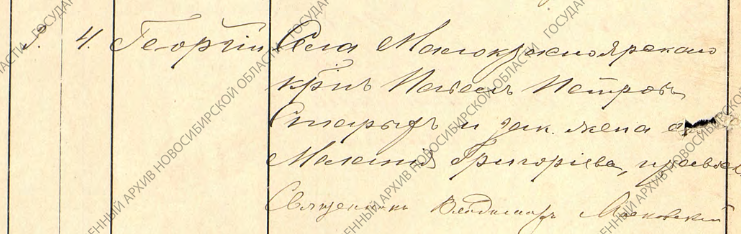 2. 4. Георгій Села Малокрасноярскаго
кр̃нъ Павелъ Петровъ
Старыхъ и зак. жена его
Маланія Григоріева, правосл
Священникъ Владимиръ
ГОСУДАРСТВЕННЫЙ АРХИВ НОВОСИБИРСКОЙ ОБЛАСТИ